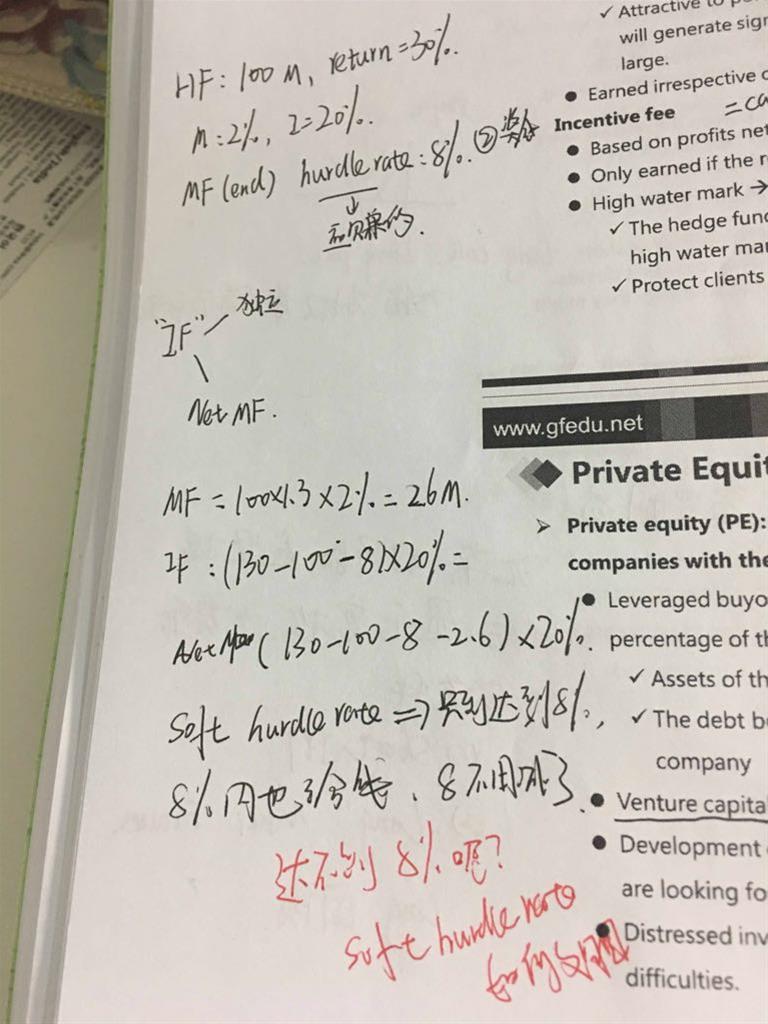 HF: 100 M, return = 30%.
M: 2%, I = 20%.
MF (end) hurdle rate: 8%. ②
↓
"IF" 独立
Net MF.
MF = 100×1.3×2% = 2.6 M.
IF : (130-100-8)×20% =
Net (130-100-8-2.6)×20%.
Soft hurdle rate ⇒ 只要达到8%,
8%内也分钱、8不用减了.
达不到8%呢?
soft hurdle rate
如何
✓ Attractive to
will generate
large.
● Earned irrespective
Incentive fee
● Based on profits net
● Only earned if the
● High water mark →
✓ The hedge
high water
✓ Protect clients
www.gfedu.net
Private
➢ Private equity (PE):
companies with the
● Leveraged
percentage of
✓ Assets of
✓ The debt
company
● Venture
● Development
are looking
● Distressed
difficulties.